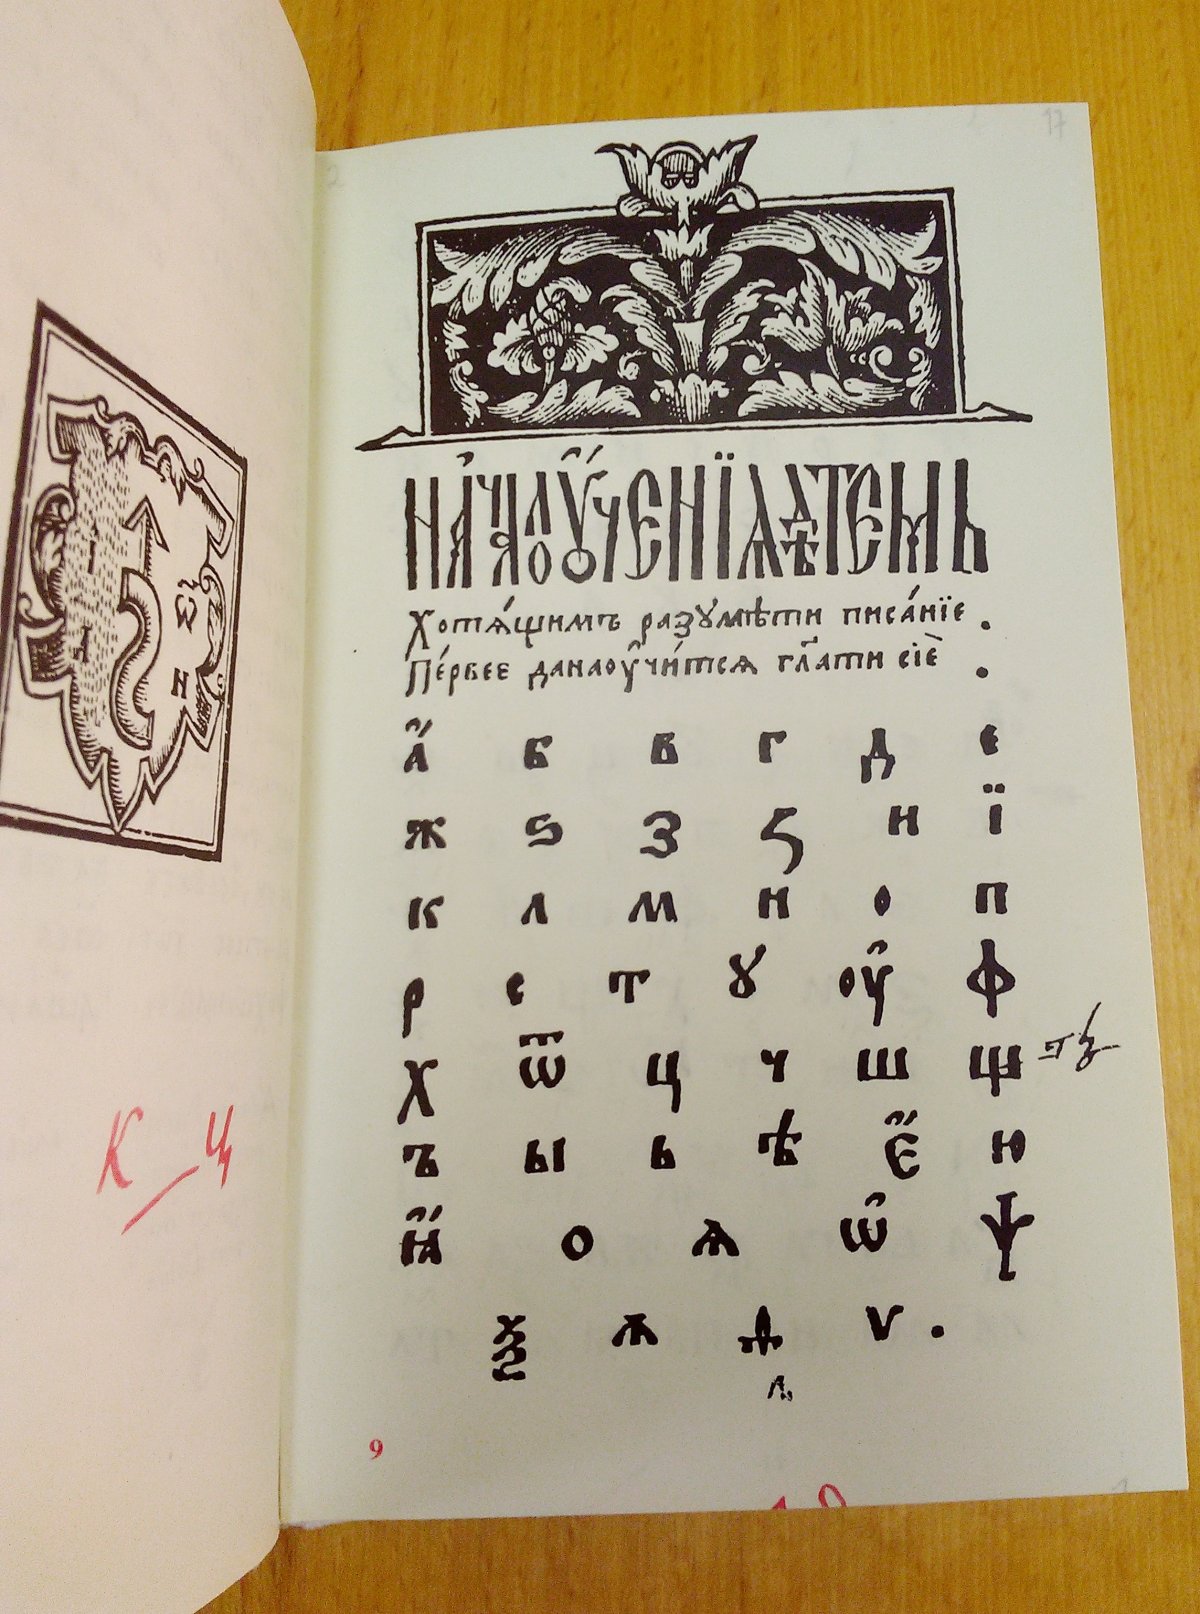 К Ц
17
НАЧАЛО ОУЧЕНЇѦ ДѢТЕМЬ
Хотѧ́щимъ разꙋмѣти писа́нїе .
Пе́рвее данаоу҆чи́тсѧ гл҃ати сїѐ .
а҆́ б в г д е
ж ѕ з ꙁ и ї
к л м н о п
р с т ꙋ оу҆ ф
х ѿ ц ч ш щ
ъ ы ь ѣ є҆́ ю
ꙗ҆́ о ѫ ѡ҆ ѱ
ѯ ѧ ѳ ѵ .
9